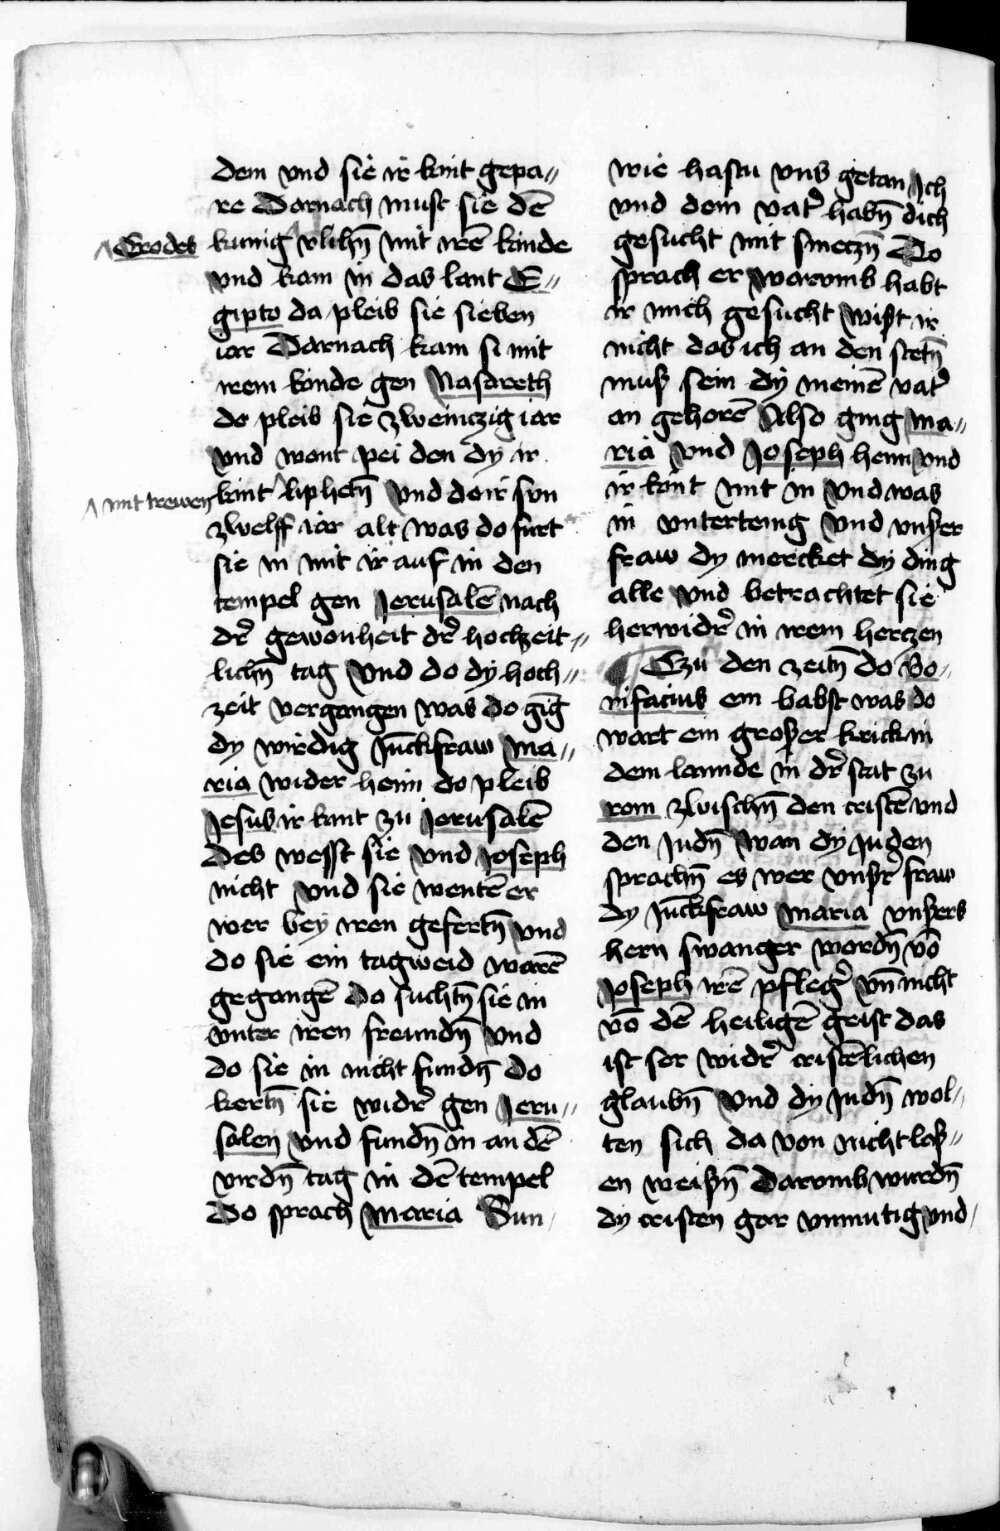 dem vnd sie ir kint gepa„
re Darnach must sie dē
kunig vlihn̄ mit irē kinde
^ Erodes
vnd kam in das lant E„
gipto da pleib sie sieben
iar Darnach kam si mit
irem kinde gen Nasareth
do pleib sie zweinczig iar
vnd wont pei den dy ir
kint liphetn̄ vnd do ir sun
^ mit trewen
zwelff iar alt was do furt
sie in mit ir auf in den
tempel gen Jerusalē nach
dr̄ gewonheit dr̄ hochzeit„
lichn̄ tag vnd do dÿ hoch„
zeit vergangen was do gīg
dy wirdig Jūckfraw ma„
ria wider heim do pleib
Jesus ir kint zu Jerusalē
Des wesst sie vnd Joseph
nicht vnd sie wentē er
wer beÿ iren gefertn̄ vnd
do sie ein tagweid warē
gegangē Do suchtn̄ sie in
vnter iren freundn̄ vnd
do sie in nicht fundn̄ do
kertn̄ sie widr̄ gen Jeru„
salen vnd fundn̄ in an dē
virdn̄ tag in dē tempel
Do sprach Maria Sun
wie hastu vns getan Ich
vnd dein vatr̄ habn̄ dich
gesucht mit smeczn̄ Do
sprach er warvmb habt
ir mich gesucht wist ir
nicht das ich an den stetn̄
muß sein dÿ meinē vatr̄
an gehorē Also ging ma„
ria vnd Joseph heim vnd
ir kint mit in vnd was
in vntertenig vnd vnßer
fraw dy mercket dÿ ding
alle vnd betrachtet sie
herwidr̄ in irem herczen
¶ Czu den zeitn̄ do Bo„
nifacius ein babst was do
wart ein großer krick in
dem lannde in dr̄ stat zu
rom zwischn̄ den cristē vnd
den Judn̄ wan dÿ Juden
sprachn̄ es wer vnßr̄ fraw
dy Jūckfraw maria vnßers
hern swanger wordn̄ vō
Joseph irē pflegr̄ vn̄ nicht
vō dē heiligē geist das
ist ser widr̄ cristēlichen
glaubn̄ vnd dÿ Judn̄ wol„
ten sich da von nicht laß„
en weißn̄ Darvmb wurdn̄
dÿ cristen gar vnmutig vnd